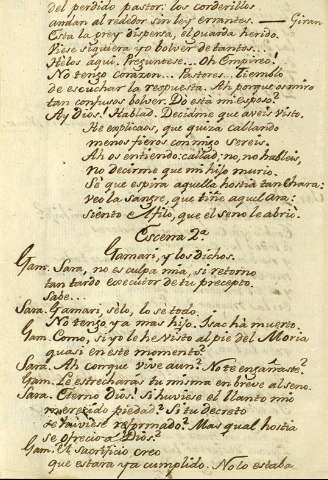 del perdido pastor. los corderillos
andan al rededor sin ley errantes. — Giran
Esta la grey dispersa, el guarda herido.
Viese siquiera yo bolver de tantos...
Helos aqui. Preguntese... Oh Empireo!
No tengo corazon... Pastores... Tiemblo
de escuchar la respuesta. Ah porque os miro
tan confusos bolver. Do está mi esposo?
Ay Dios! Hablad. Decidme que aveis visto.
He explicaos, que quiza callando
menos fieros conmigo sereis.
Ah os entiendo: callad: no, no hableis,
no decirme que mi hijo murio.
Sè que espira aquella hostia tan chara:
veo la sangre, que tiñe aquel Ara:
siento el filo, que el seno le abrio.
Escena 2ª
Gamari, y los dichos.
Gam. Sara, no es culpa mia, si retorno
tan tardo executor de tu precepto.
Sabe...
Sara. Gamari, sèlo, lo se todo.
No tengo ya mas hijo. Isac hà muerto.
Gam. Como, si yo le he visto al pie del Moria
quasi en este momento?
Sara. Ah conque vive aun? No te engañaste?
Gam. Le estrecharas tu misma en breve al seno.
Sara. Eterno Dios! Si huviese el llanto mio
merecido piedad? Si tu decreto
se huviese reformado? Mas qual hostia
se ofrecio a Dios?
Gam. El sacrificio creo
que estara ya cumplido. No lo estaba